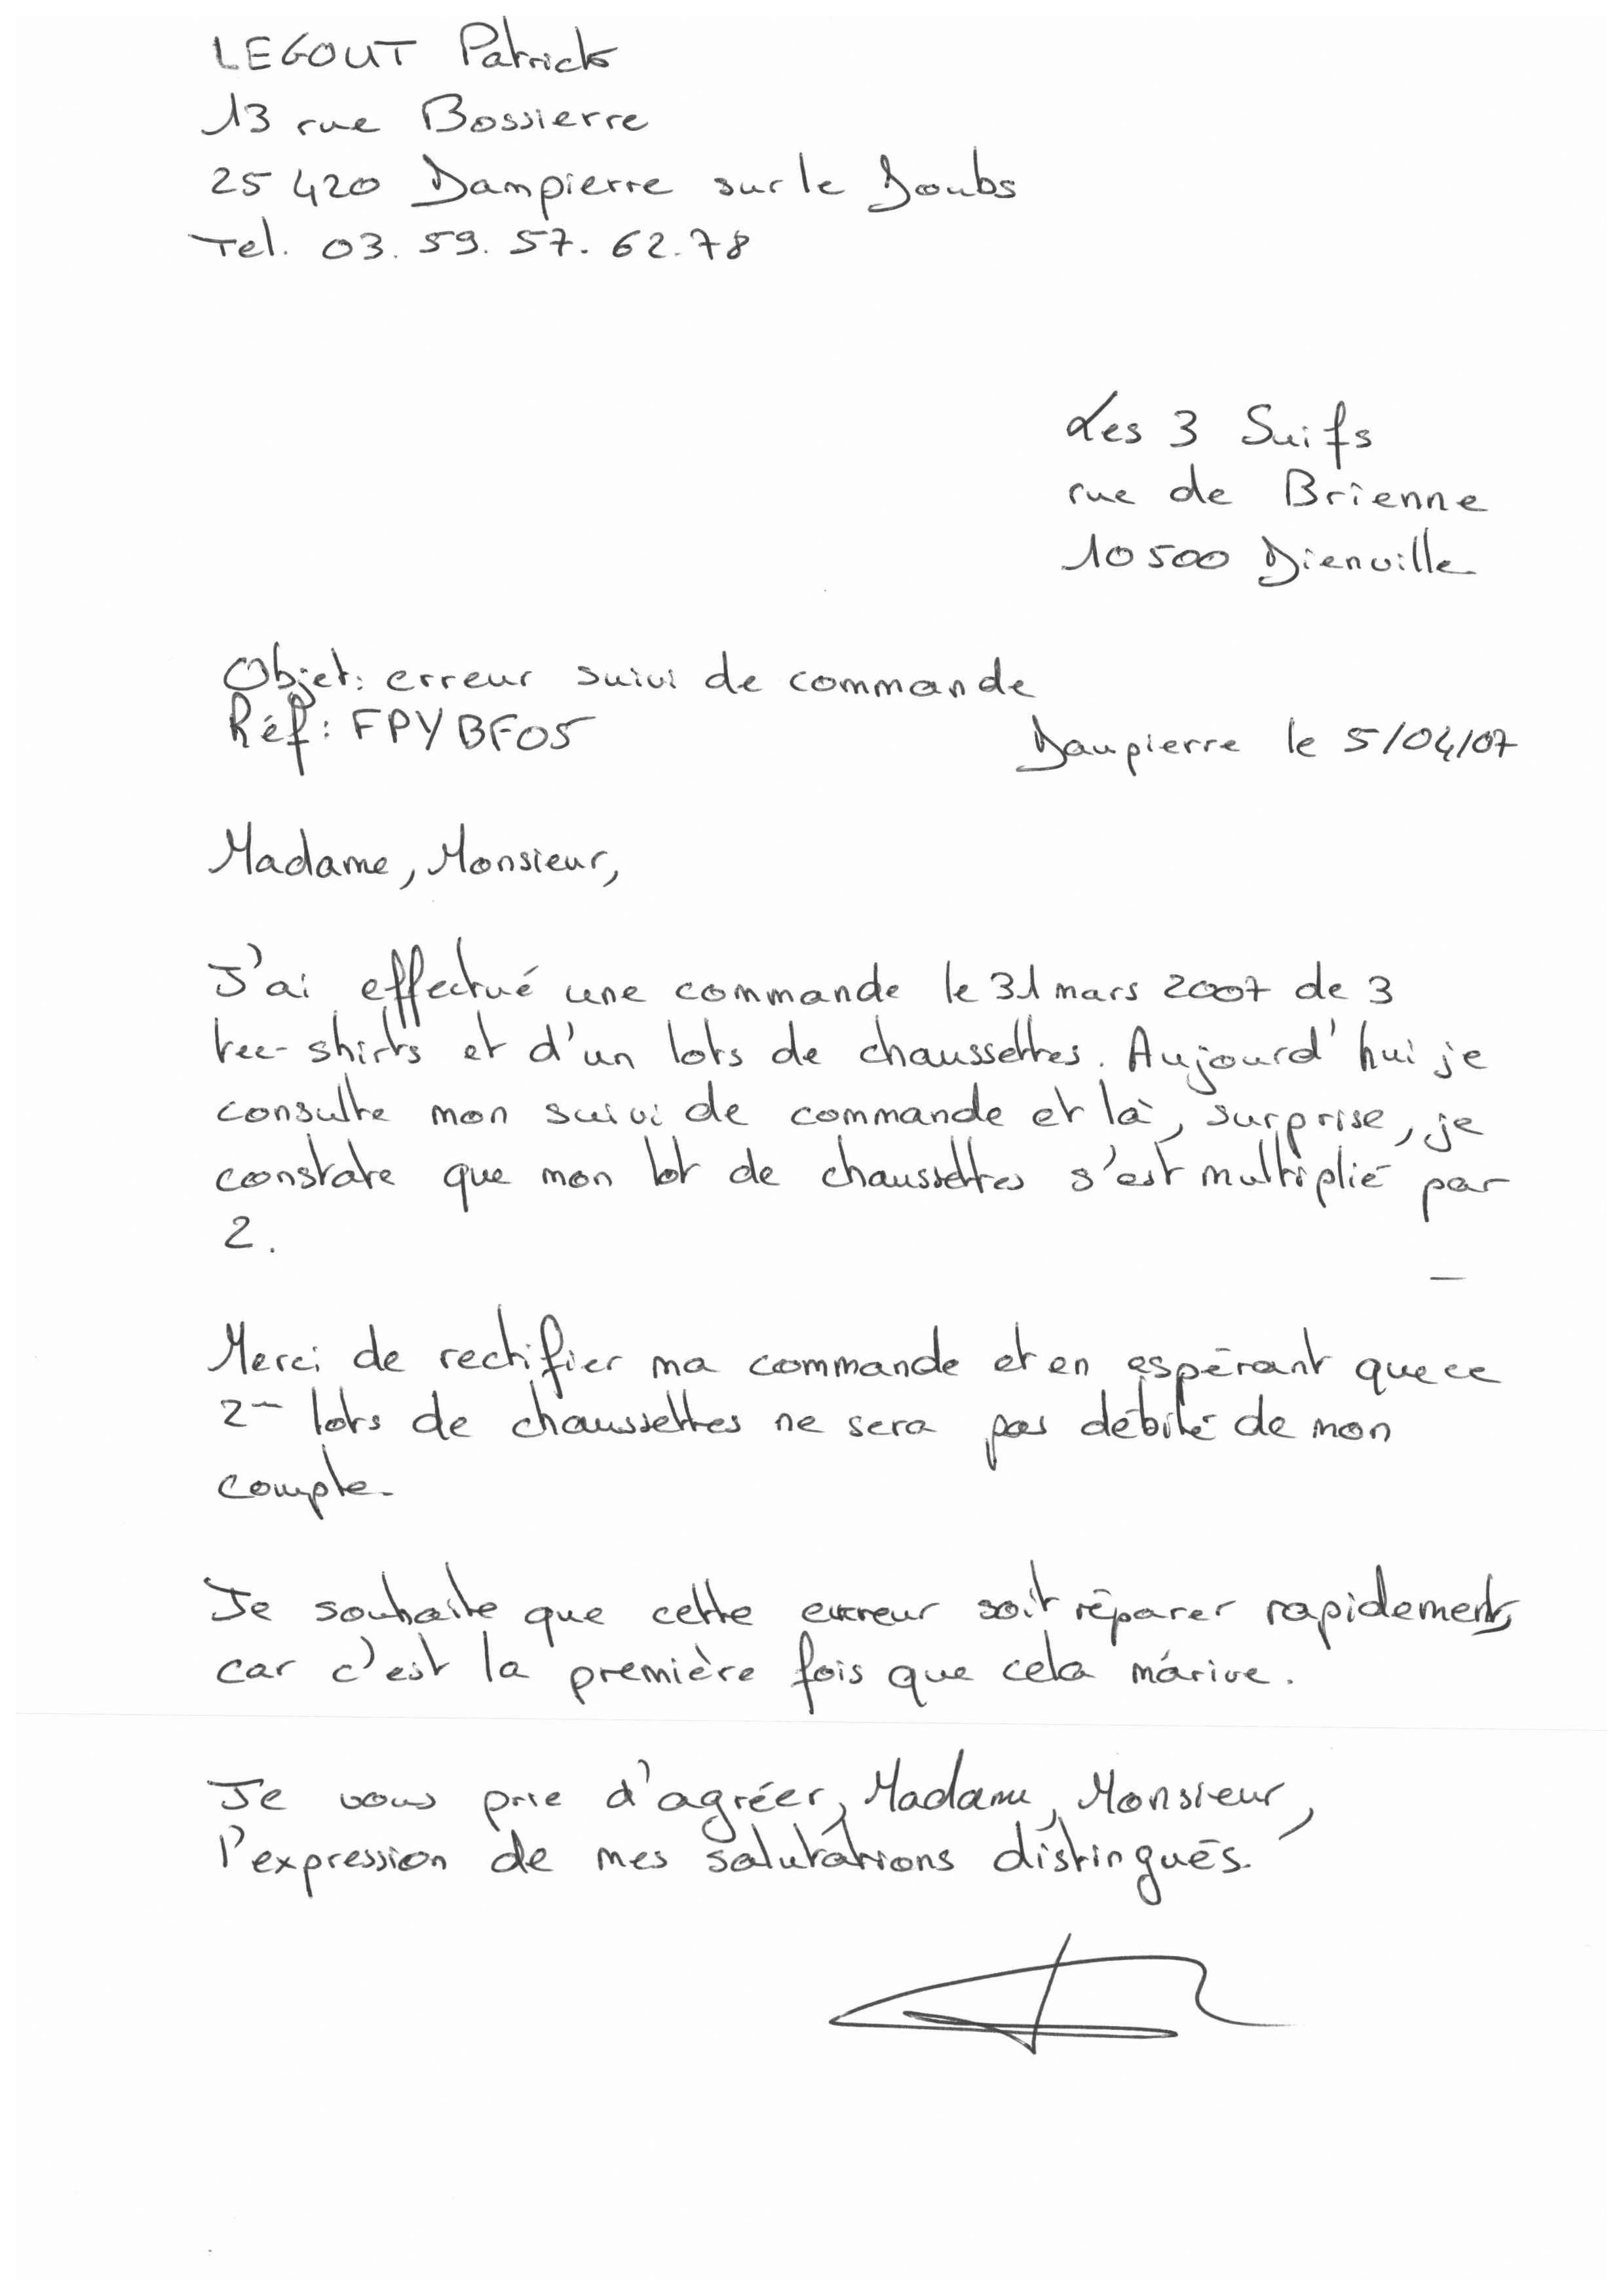 LEGOUT Patrick
13 rue Bossierre
25 420 Dampierre sur le Doubs
Tel. 03. 59. 57. 62. 78
Les 3 Suifs
rue de Brienne
10 500 Dienville
Objet: erreur suivi de commande
Réf: FPYBF05
Daupierre le 5/04/07
Madame, Monsieur,
J'ai effectué une commande le 31 mars 2007 de 3
tee-shirts et d'un lots de chaussettes. Aujourd'hui je
consulte mon suivi de commande et là, surprise, je
constate que mon lot de chaussettes s'est multiplié par
2.
Merci de rectifier ma commande et en espérant que ce
2me lots de chaussettes ne sera pas débité de mon
compte.
Je souhaite que cette erreur soit réparer rapidement,
car c'est la première fois que cela m'arive.
Je vous prie d'agréer, Madame, Monsieur,
l'expression de mes salutations distingués.